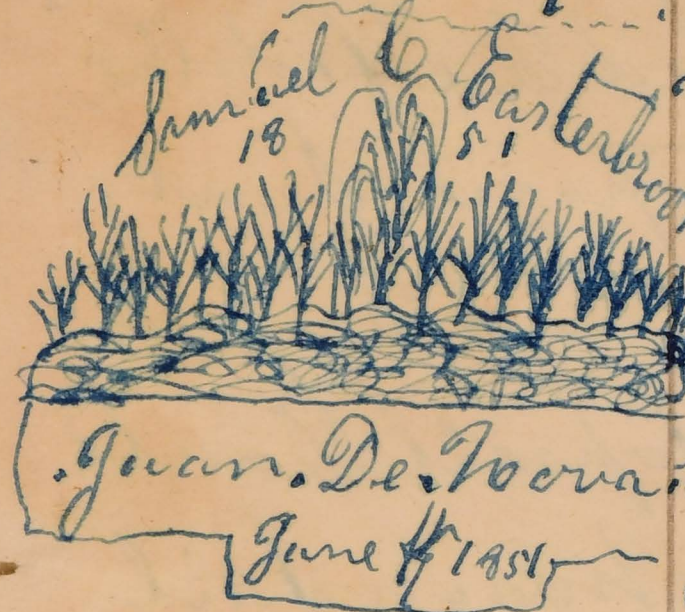 Samuel C Easterbrook
18 51
Juan. De. Nova.
June 1851